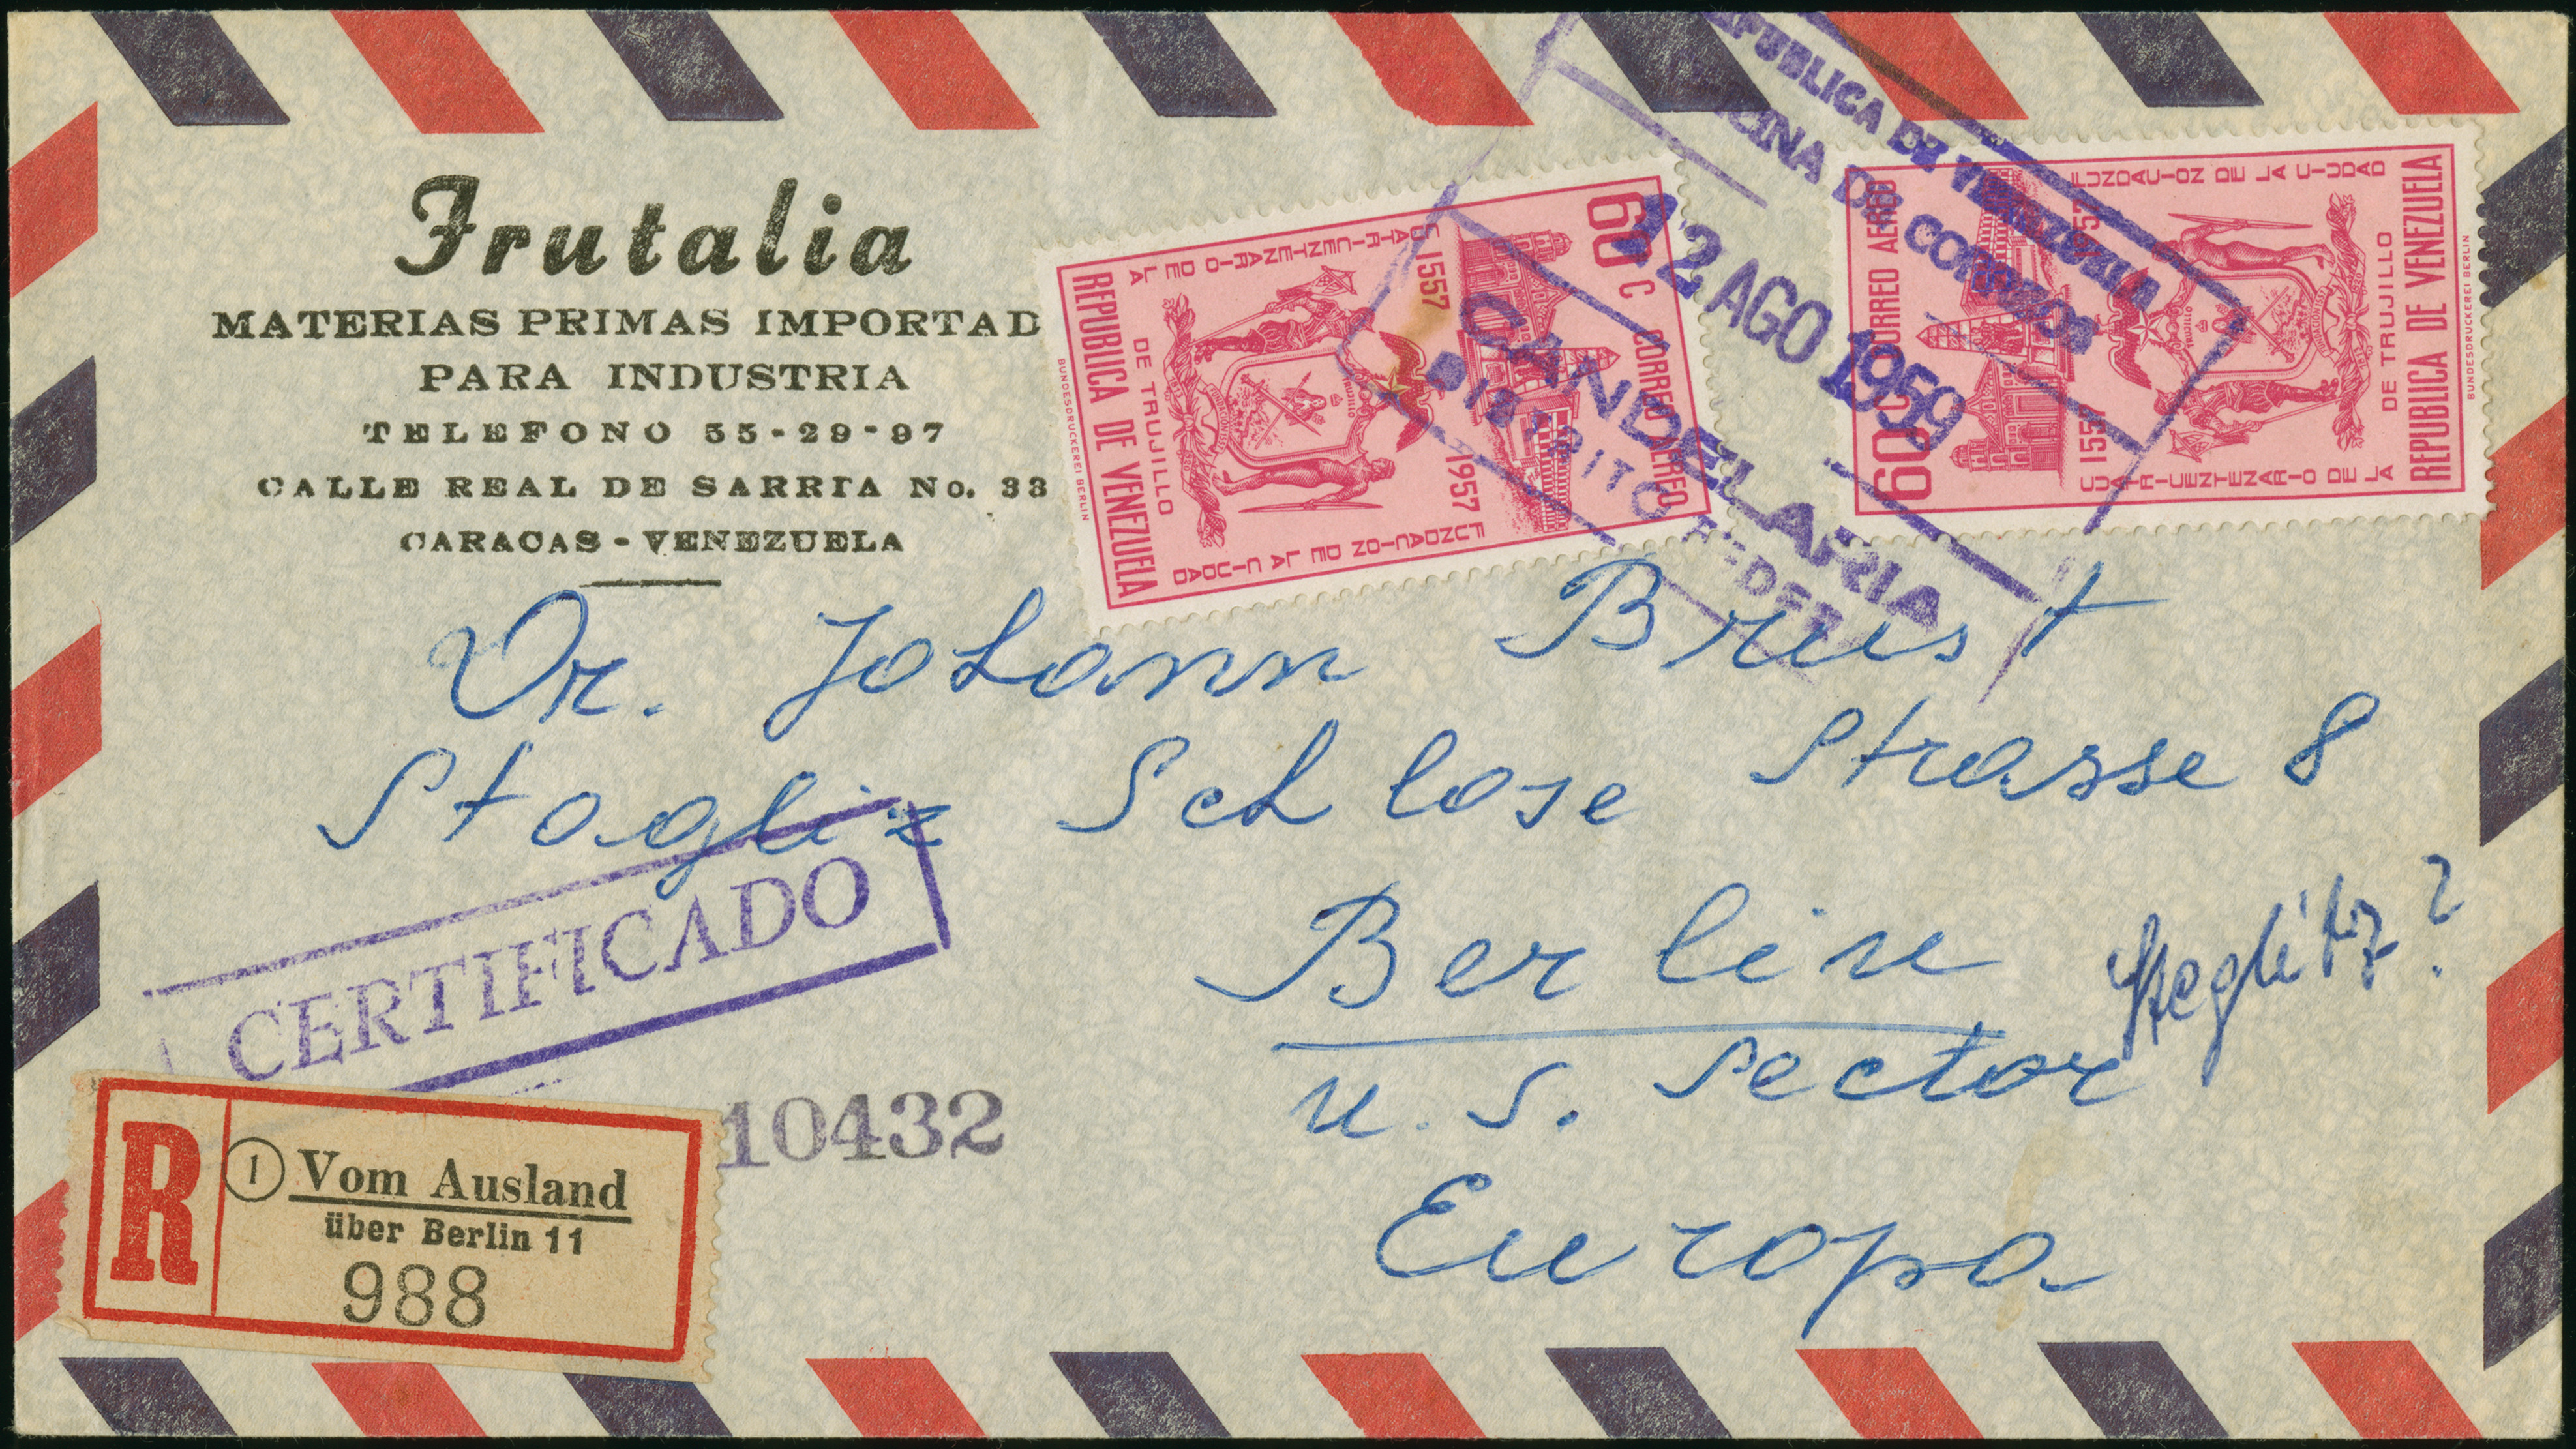 Frutalia
MATERIAS PRIMAS IMPORTAD
PARA INDUSTRIA
TELEFONO 55-29-97
CALLE REAL DE SARRIA No. 33
CARACAS - VENEZUELA
60 C CORREO AEREO
CUATRICENTENARIO DE LA
1557 1957
FUNDACION DE LA CIUDAD
DE TRUJILLO
REPUBLICA DE VENEZUELA
BUNDESDRUCKEREI BERLIN
60 C CORREO AEREO
CUATRICENTENARIO DE LA
1557 1957
FUNDACION DE LA CIUDAD
DE TRUJILLO
REPUBLICA DE VENEZUELA
BUNDESDRUCKEREI BERLIN
REPUBLICA DE VENEZUELA
OFICINA DE CORREOS
12 AGO 1959
CANDELARIA
DISTRITO FEDERAL
Dr. Johann Brust
Stagliz Schlose Strasse 8
Berlin Steglitz?
U.S. Sector
Europa
CERTIFICADO
10432
R
1 Vom Ausland
über Berlin 11
988